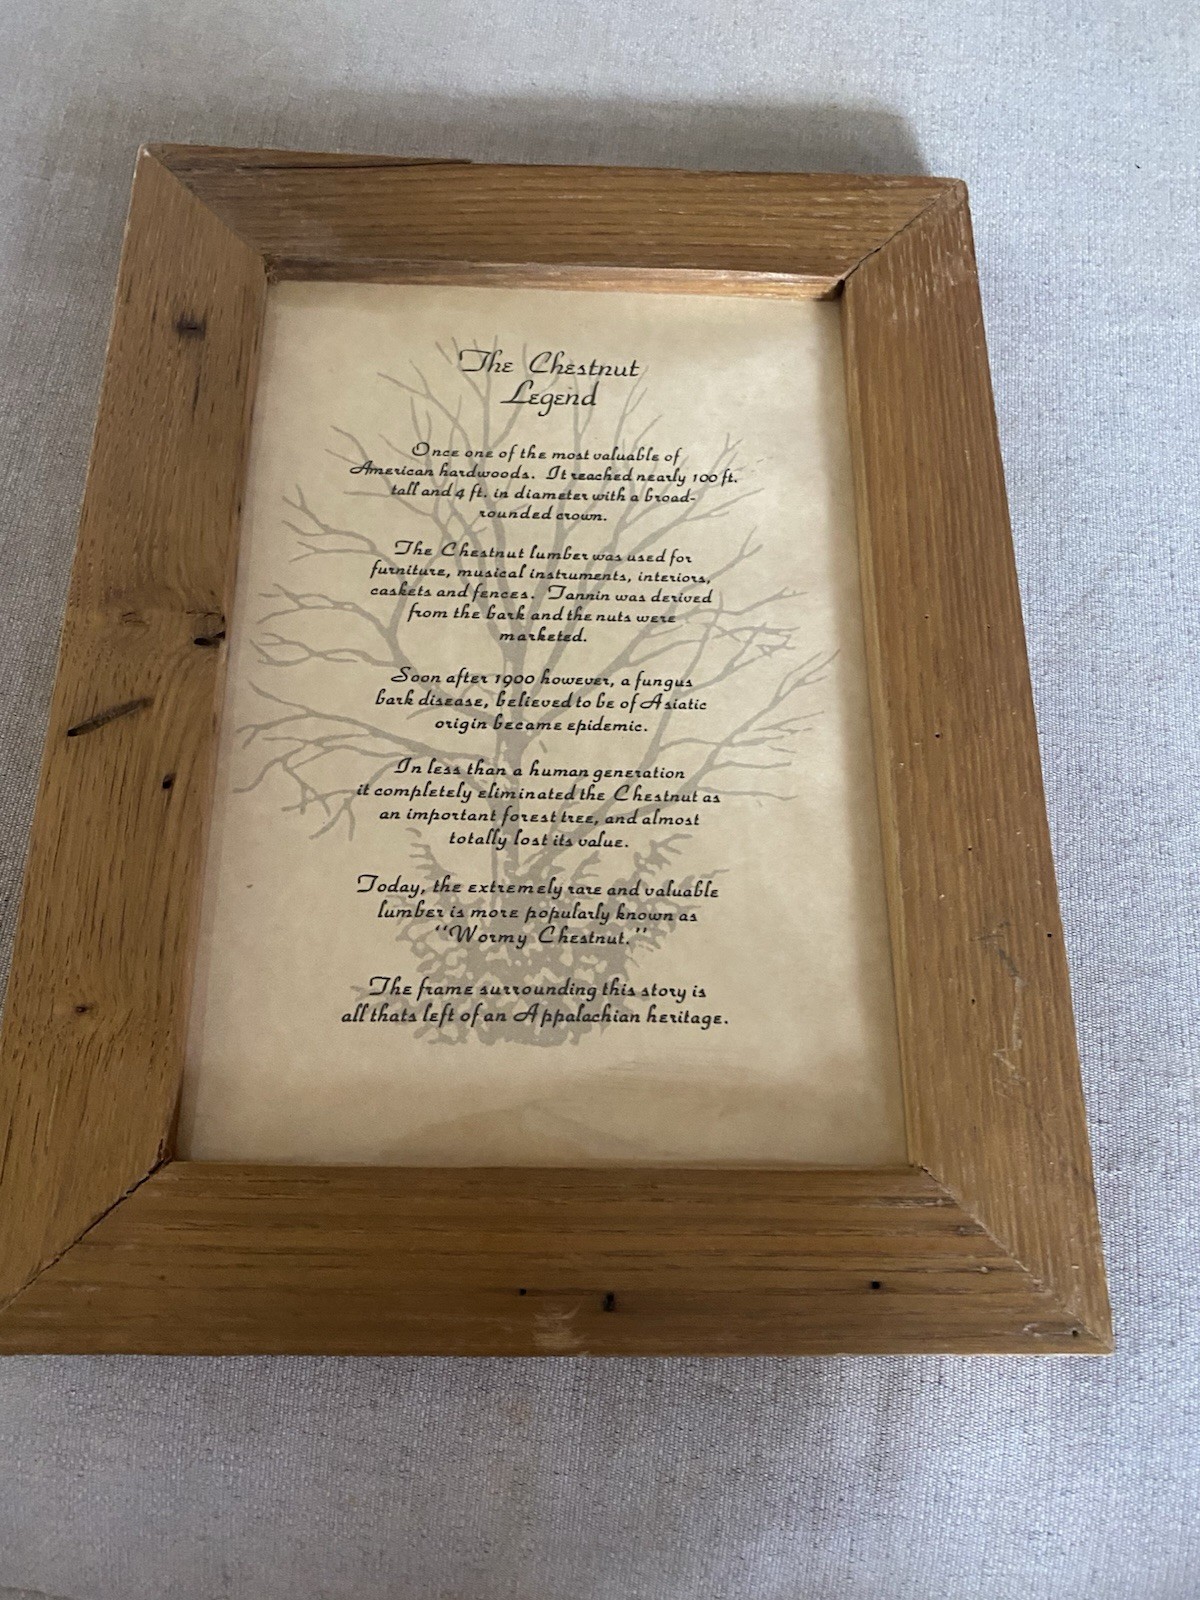 The Chestnut
Legend
Once one of the most valuable of
American hardwoods. It reached nearly 100 ft.
tall and 4 ft. in diameter with a broad-
rounded crown.
The Chestnut lumber was used for
furniture, musical instruments, interiors,
caskets and fences. Tannin was derived
from the bark and the nuts were
marketed.
Soon after 1900 however, a fungus
bark disease, believed to be of Asiatic
origin became epidemic.
In less than a human generation
it completely eliminated the Chestnut as
an important forest tree, and almost
totally lost its value.
Today, the extremely rare and valuable
lumber is more popularly known as
"Wormy Chestnut."
The frame surrounding this story is
all thats left of an Appalachian heritage.